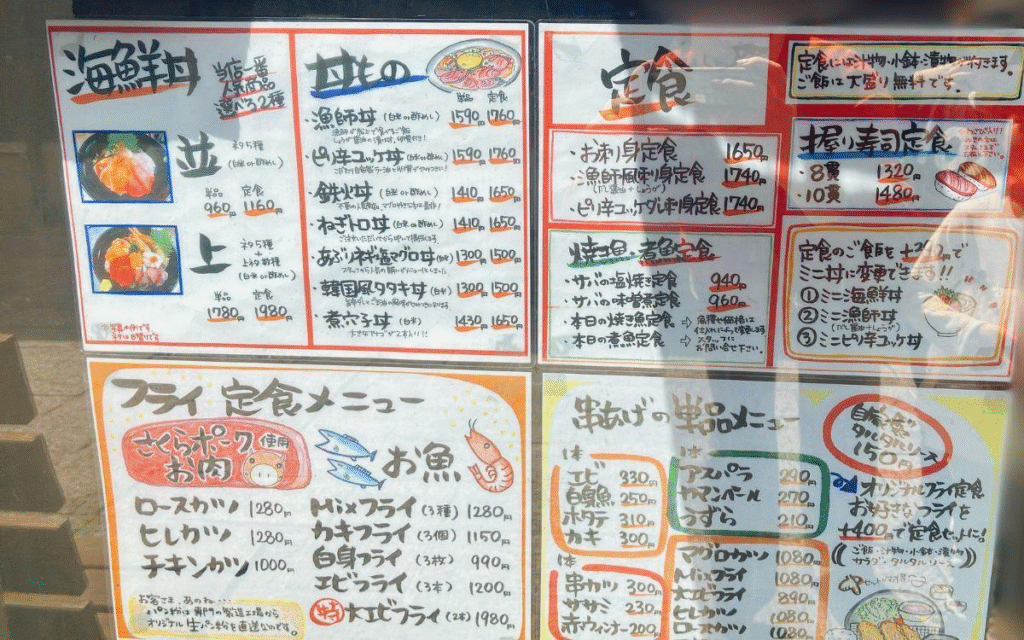 海鮮丼
当店一番
人気商品
選べる2種
並
ネタ5種
(白米or酢めし)
単品 定食
960円 1160円
上
ネタ5種
+
上ネタ数種
(白米or酢めし)
単品 定食
1780円 1980円
丼もの
単品 定食
・漁師丼(白米or酢めし) 1590円 1760円
・ピリ辛ユッケ丼(白米or酢めし) 1590円 1760円
・鉄火丼(白米or酢めし) 1410円 1650円
・ねぎトロ丼(白米or酢めし) 1410円 1650円
・あぶりネギ塩マグロ丼(白米) 1300円 1500円
・韓国風タタキ丼(白米) 1300円 1500円
・煮穴子丼(白米) 1430円 1650円
定食
定食には汁物・小鉢・漬物が付きます。
ご飯は大盛り無料です。
・お刺身定食 1650円
・漁師風刺身定食 1740円
(だし醤油+しょうが)
・ピリ辛ユッケダレ刺身定食 1740円
握り寿司定食
・8貫 1320円
・10貫 1480円
焼き魚・煮魚定食
・サバの塩焼定食 940円
・サバの味噌煮定食 960円
・本日の焼き魚定食
・本日の煮魚定食
⇨魚種や価格は
仕入れによって変わります
⇨スタッフに
お問い合せ下さい。
定食のご飯を+200円で
ミニ丼に変更できます!!
①ミニ海鮮丼
②ミニ漁師丼
(だし醤油+しょうが)
③ミニピリ辛ユッケ丼
フライ定食メニュー
さくらポーク使用
お肉
ロースカツ 1280円
ヒレカツ 1280円
チキンカツ 1000円
お客さま、あのね…
パン粉は専門の製造工場から
オリジナル生パン粉を直送なのです。
お魚
Mixフライ(3種) 1280円
カキフライ(3個) 1150円
白身フライ(3枚) 990円
エビフライ(3本) 1200円
大エビフライ(2本) 1980円
串あげの単品メニュー
1本
エビ 330円
白身魚 250円
ホタテ 310円
カキ 300円
1本
アスパラ 290円
カマンベール 270円
うずら 210円
1本
串カツ 300円
ササミ 230円
赤ウィンナー 200円
マグロカツ 1080円
Mixフライ 1080円
大エビフライ 890円
ヒレカツ 1080円
ロースカツ 1080円
自家製
タルタルソース
150円
オリジナルフライ定食
お好きなフライを
+400円で定食セットに。
(ご飯・汁物・小鉢・漬物
サラダ・タルタルソース)